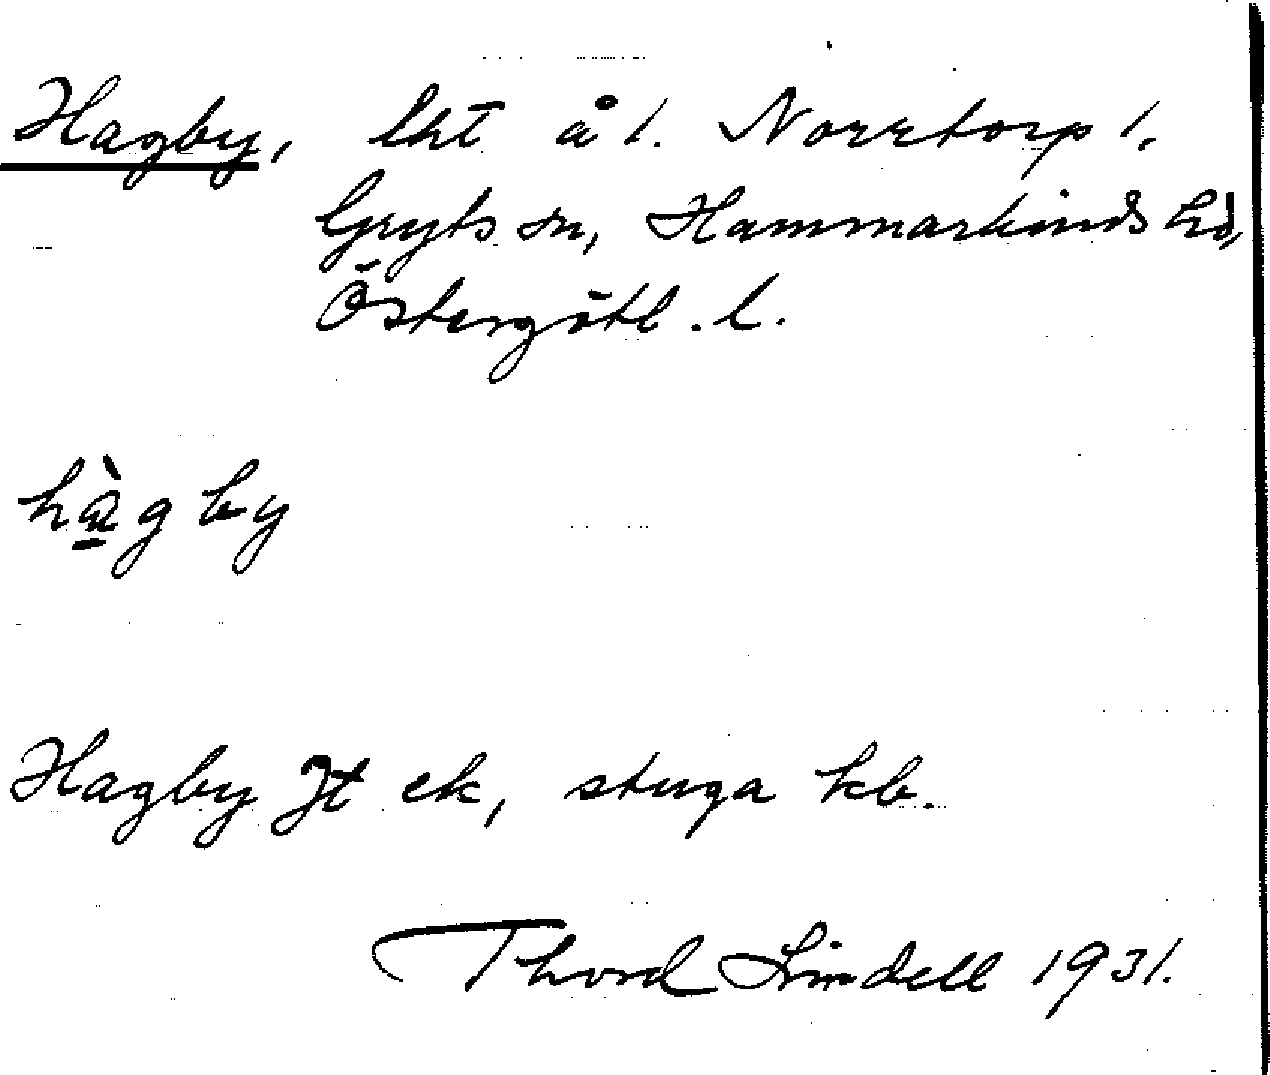 Hagby, lht å 1. Norrtorp 1,
Gryts sn, Hammarkinds hd,
Östergötl. l.
hàg by
Hagby Jt ek, stuga kb.
Thord Lindell 1931.